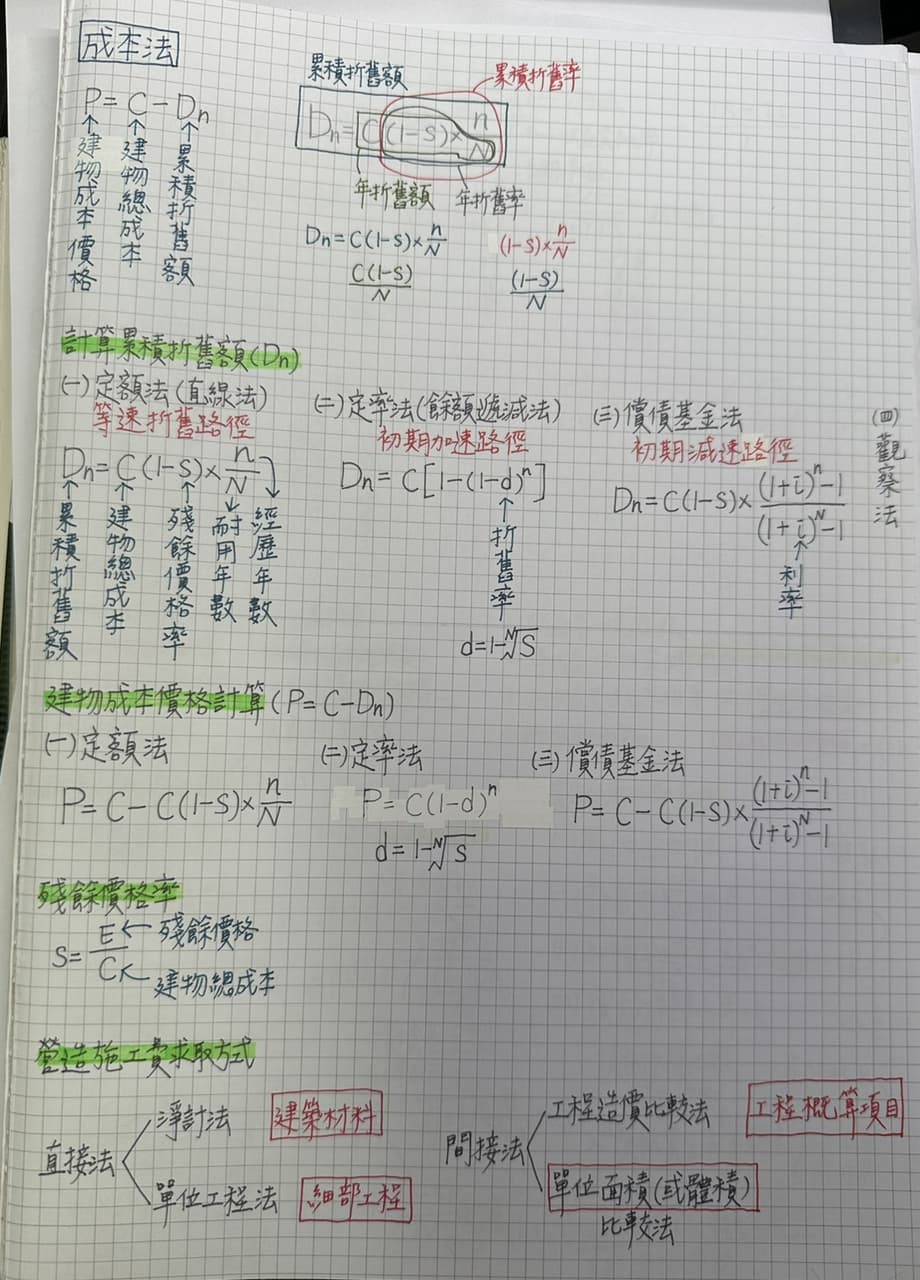 成本法
P = C - Dn
建物成本價格
建物總成本
累積折舊額
累積折舊額
累積折舊率
Dn = C(1-S)× n/N
年折舊額
年折舊率
Dn = C(1-S)× n/N
(1-S)× n/N
C(1-S)/N
(1-S)/N
計算累積折舊額(Dn)
(一)定額法(直線法)
等速折舊路徑
Dn = C(1-S)× n/N
累積折舊額
建物總成本
殘餘價格率
耐用年數
經歷年數
(二)定率法(餘額遞減法)
初期加速路徑
Dn = C[1-(1-d)^n]
折舊率
d = 1-ᴺ√S
(三)償債基金法
初期減速路徑
Dn = C(1-S)× ((1+i)^n-1)/((1+i)^N-1)
利率
(四)觀察法
建物成本價格計算(P=C-Dn)
(一)定額法
P = C - C(1-S)× n/N
(二)定率法
P = C(1-d)^n
d = 1-ᴺ√S
(三)償債基金法
P = C - C(1-S)× ((1+i)^n-1)/((1+i)^N-1)
殘餘價格率
S = E/C
殘餘價格
建物總成本
營造施工費求取方式
直接法
淨計法 建築材料
單位工程法 細部工程
間接法
工程造價比較法 工程概算項目
單位面積(或體積)
比較法